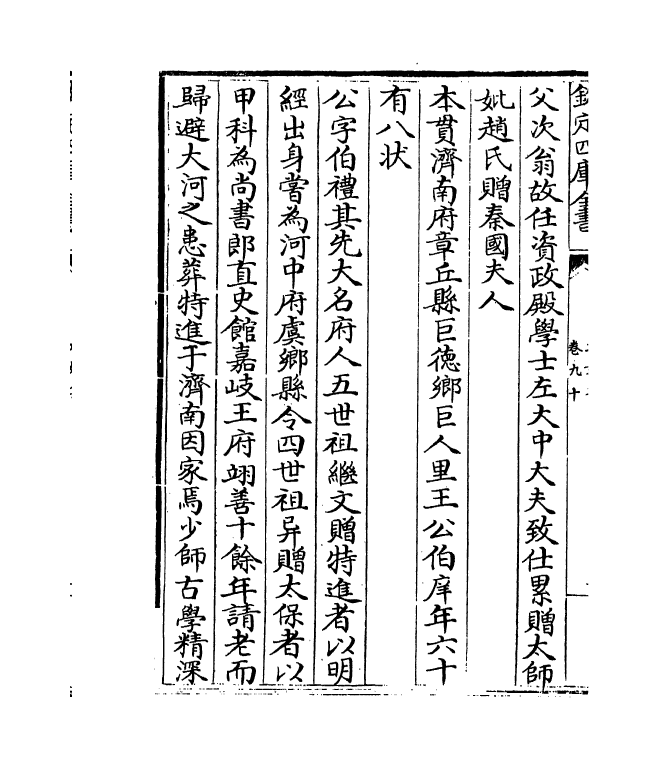 欽定四庫全書
卷九十
父次翁故任資政殿學士左大中大夫致仕累贈太師
妣趙氏贈秦國夫人
本貫濟南府章丘縣巨徳鄉巨人里王公伯庠年六十
有八狀
公字伯禮其先大名府人五世祖繼文贈特進者以明
經出身嘗為河中府虞鄉縣令四世祖异贈太保者以
甲科為尚書郎直史館嘉岐王府翊善十餘年請老而
歸避大河之患葬特進于濟南因家焉少師古學精深